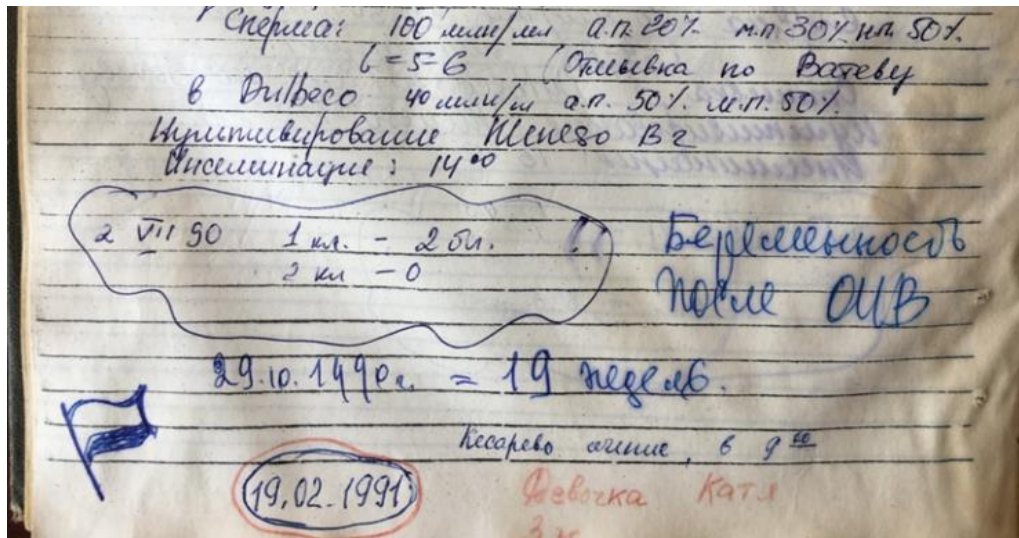 Сперма: 100 млн/мл а.п. 20% м.п. 30% н.п. 50%.
t = 5-6 (Отмывка по Ватеву
в Dulbeco 40 млн/м а.п. 50%. м.п. 50%.
Культивирование Menezo B2
Инсеминация: 14⁰⁰
2 VII 90 1 кл. - 2 бл.
2 кл - 0
Беременность
после
29.10.1990г. = 19 недель.
Кесарево сечение, в 9
19.02.1991
Девочка Катя